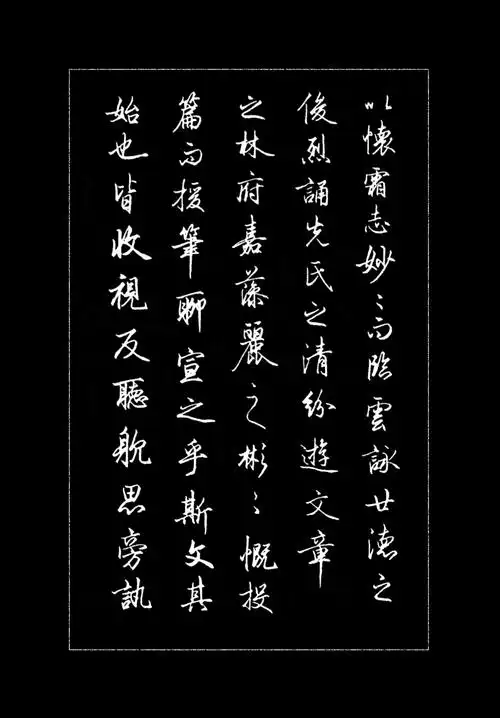 以懷霜志妙〻而臨雲詠世德之
俊烈誦先氏之清紛遊文章
之林府嘉藻麗之彬〻慨投
篇而授筆聊宣之乎斯文其
始也皆收視反聽躭思旁訊